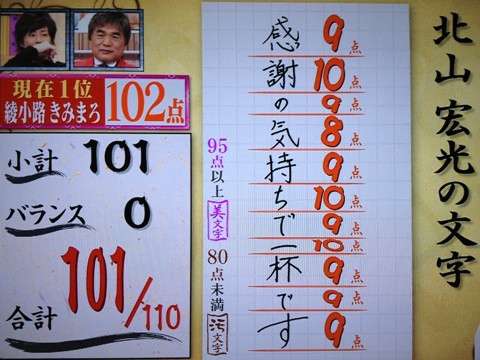 北山 宏光の文字
感謝の気持ちで一杯です
9点
10点
9点
8点
9点
10点
9点
10点
9点
9点
9点
95点以上 美文字
80点未満 汚文字
現在1位
綾小路 きみまろ
102点
小計 101
バランス 0
合計 101/110